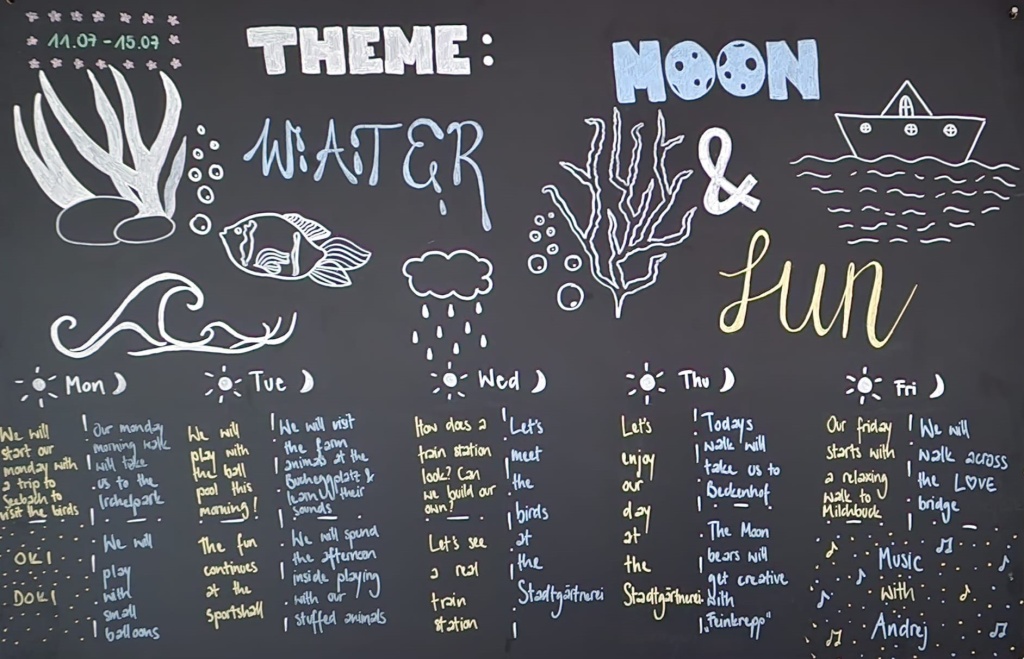 11.07 - 15.07
THEME:
WATER
MOON
&
Sun
Mon
We will
start our
monday with
a trip to
Seebach to
visit the birds
OKI
DOKI
Our monday
morning walk
will take
us to the
Irchelpark
We will
play
with
small
balloons
Tue
We will
play with
the ball
pool this
morning!
The fun
continues
at the
Sportshall
We will visit
the farm
animals at the
Bucheggplatz &
learn their
sounds
We will spend
the afternoon
inside playing
with our
stuffed animals
Wed
How does a
train station
look? Can
we build our
own?
Let's see
a real
train
station
Let's
meet
the
birds
at
the
Stadtgärtnerei
Thu
Let's
enjoy
our
day
at
the
Stadtgärtnerei
Todays
walk will
take us to
Beckenhof
The Moon
bears will
get creative
with
"Feinkrepp"
Fri
Our friday
starts with
a relaxing
walk to
Milchbuck
We will
walk across
the LOVE
bridge
Music
with
Andrej